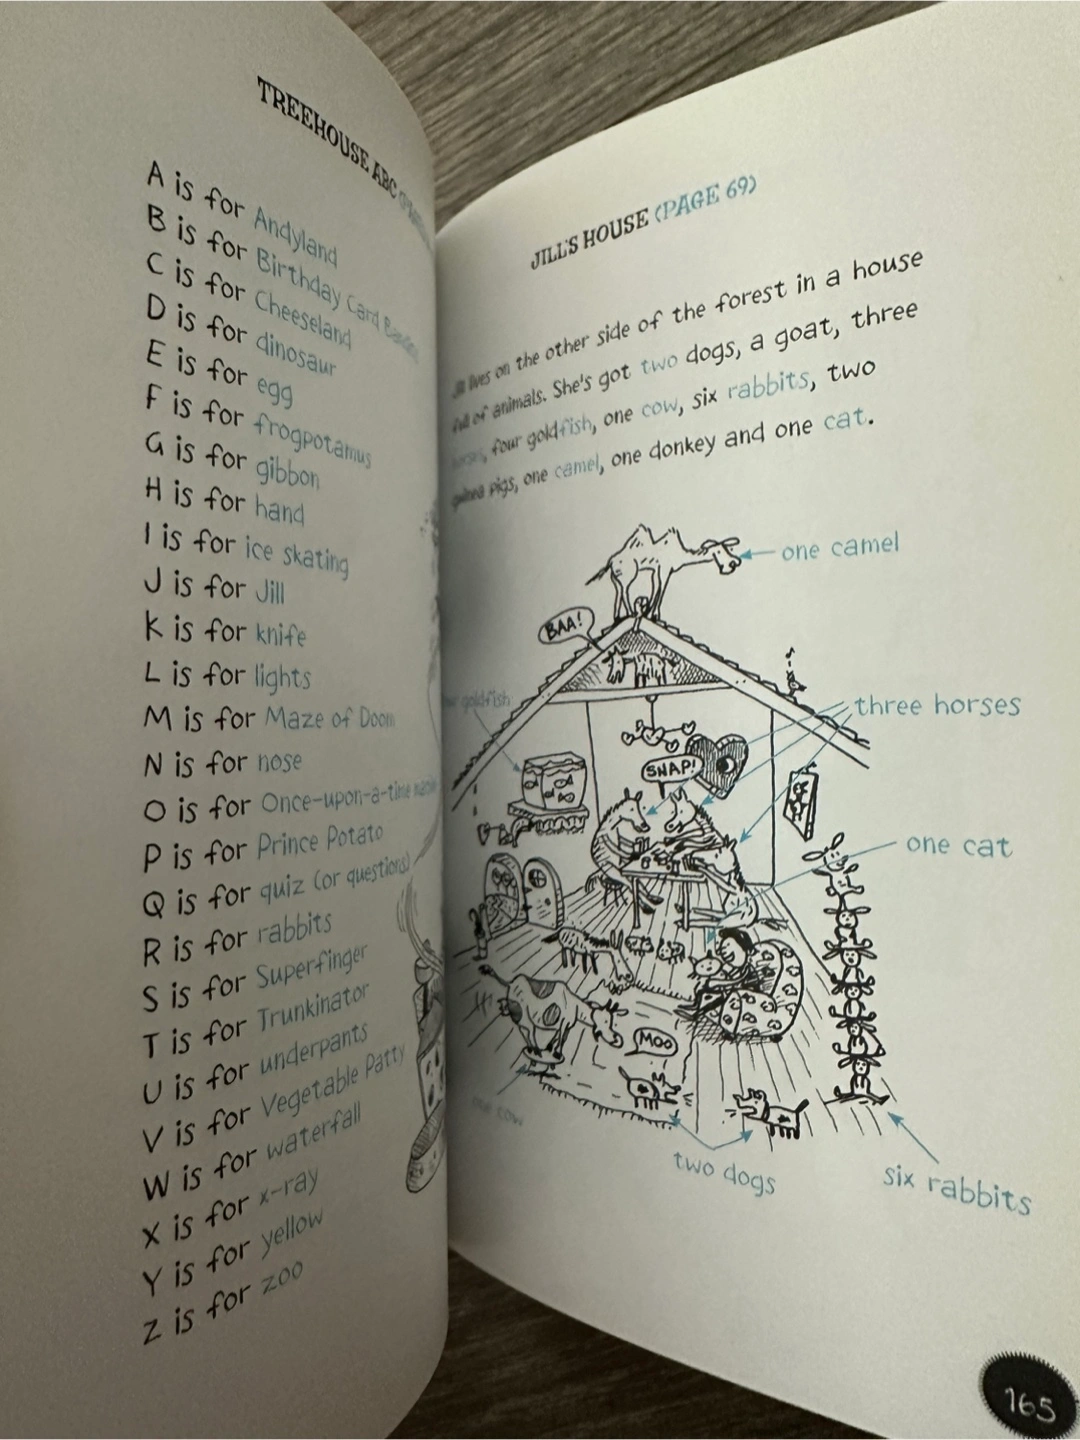 TREEHOUSE ABC
A is for Andyland
B is for Birthday Card
C is for Cheeseland
D is for dinosaur
E is for egg
F is for frogpotamus
G is for gibbon
H is for hand
I is for ice skating
J is for Jill
K is for knife
L is for lights
M is for Maze of Doom
N is for nose
O is for Once-upon-a-time
P is for Prince Potato
Q is for quiz (or questions)
R is for rabbits
S is for Superfinger
T is for Trunkinator
U is for underpants
V is for Vegetable Patty
W is for waterfall
X is for x-ray
Y is for yellow
Z is for zoo
JILL'S HOUSE (PAGE 69)
Jill lives on the other side of the forest in a house
full of animals. She's got two dogs, a goat, three
horses, four goldfish, one cow, six rabbits, two
guinea pigs, one camel, one donkey and one cat.
one camel
BAA!
four goldfish
three horses
SNAP!
one cat
MOO
one cow
two dogs
six rabbits
165